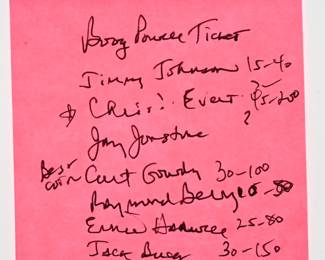 Boog Powell Ticket
Jimmy Johnson 15-40
Chris! Evert 45-200
?
Jay Johnstone
Best coin Curt Gowdy 30-100
Raymond Berry 20-50
Ernie Harwell 25-80
Jack Buck 30-150